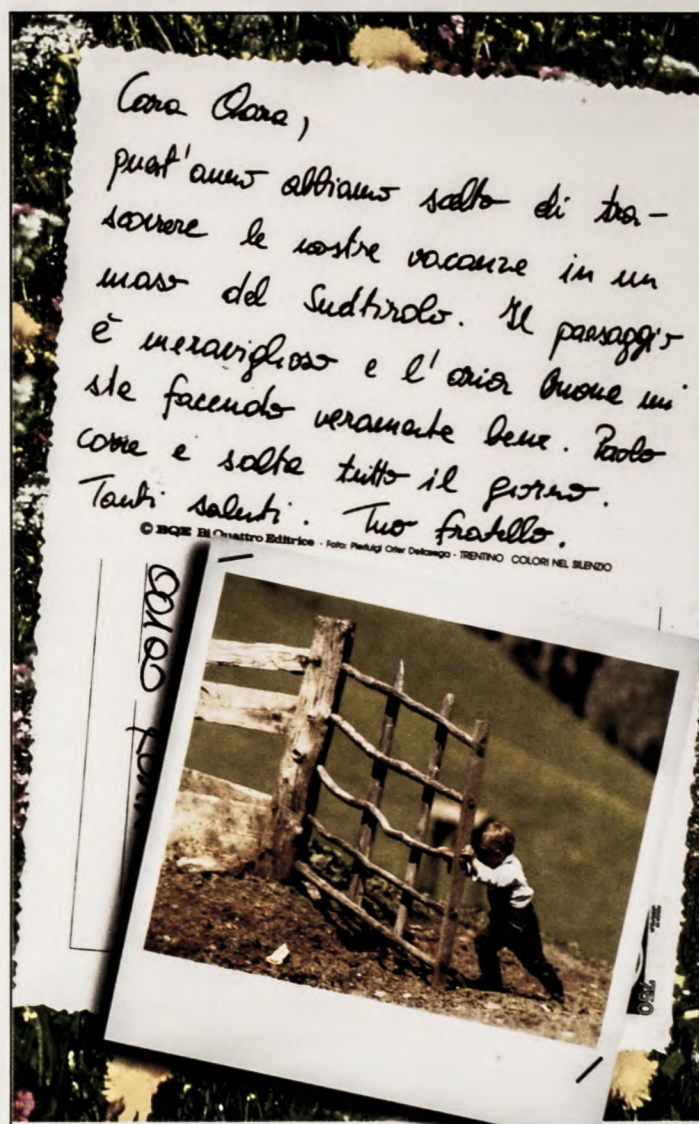 Cara Clara,
quest'anno abbiamo scelto di tra-
scorrere le nostre vacanze in un
maso del Sudtirolo. Il paesaggio
è meraviglioso e l'aria buona mi
sta facendo veramente bene. Paolo
corre e salta tutto il giorno.
Tanti saluti. Tuo fratello.
© BQE Bi Quattro Editrice - Foto: Pierluigi Orler Dellasega - TRENTINO COLORI NEL SILENZIO
750